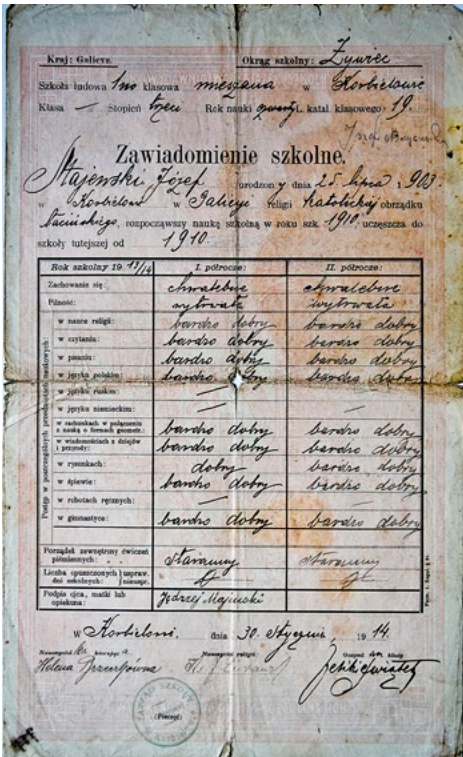 Kraj: Galicya. Okrąg szkolny: Żywiec
Szkoła ludowa 1no klasowa mieszana w Korbielowie
Klasa — Stopień trzeci Rok nauki czwarty L. katal. klasowego 19.
Zawiadomienie szkolne.
Józef urodzony dnia 25 lipca 1903
w Korbielowie w Galicyi religii katolickiej obrządku
łacińskiego, rozpocząwszy naukę szkolną w roku szk. 1910, uczęszcza do
szkoły tutejszej od 1910.
Rok szkolny 1913/14 I. półrocze: II. półrocze:
Zachowanie się: chwalebne chwalebne
Pilność: wytrwała wytrwała
Postęp w poszczególnych przedmiotach naukowych
w nauce religii: bardzo dobry bardzo dobry
w czytaniu: bardzo dobry bardzo dobry
w pisaniu: bardzo dobry bardzo dobry
w języku polskim: bardzo dobry bardzo dobry
w języku ruskim: — —
w języku niemieckim: — —
w rachunkach w połączeniu
z nauką o formach geometr.: bardzo dobry bardzo dobry
w wiadomościach z dziejów
i przyrody: bardzo dobry bardzo dobry
w rysunkach: dobry bardzo dobry
w śpiewie: bardzo dobry bardzo dobry
w robotach ręcznych: — —
w gimnastyce: bardzo dobry bardzo dobry
Porządek zewnętrzny ćwiczeń
piśmiennych: staranny staranny
Liczba opuszczonych uspraw.
dni szkolnych: nieuspr.
Podpis ojca, matki lub
opiekuna: Jędrzej
w Korbielowie. dnia 30. stycznia 1914.
Helena
(Pieczęć)